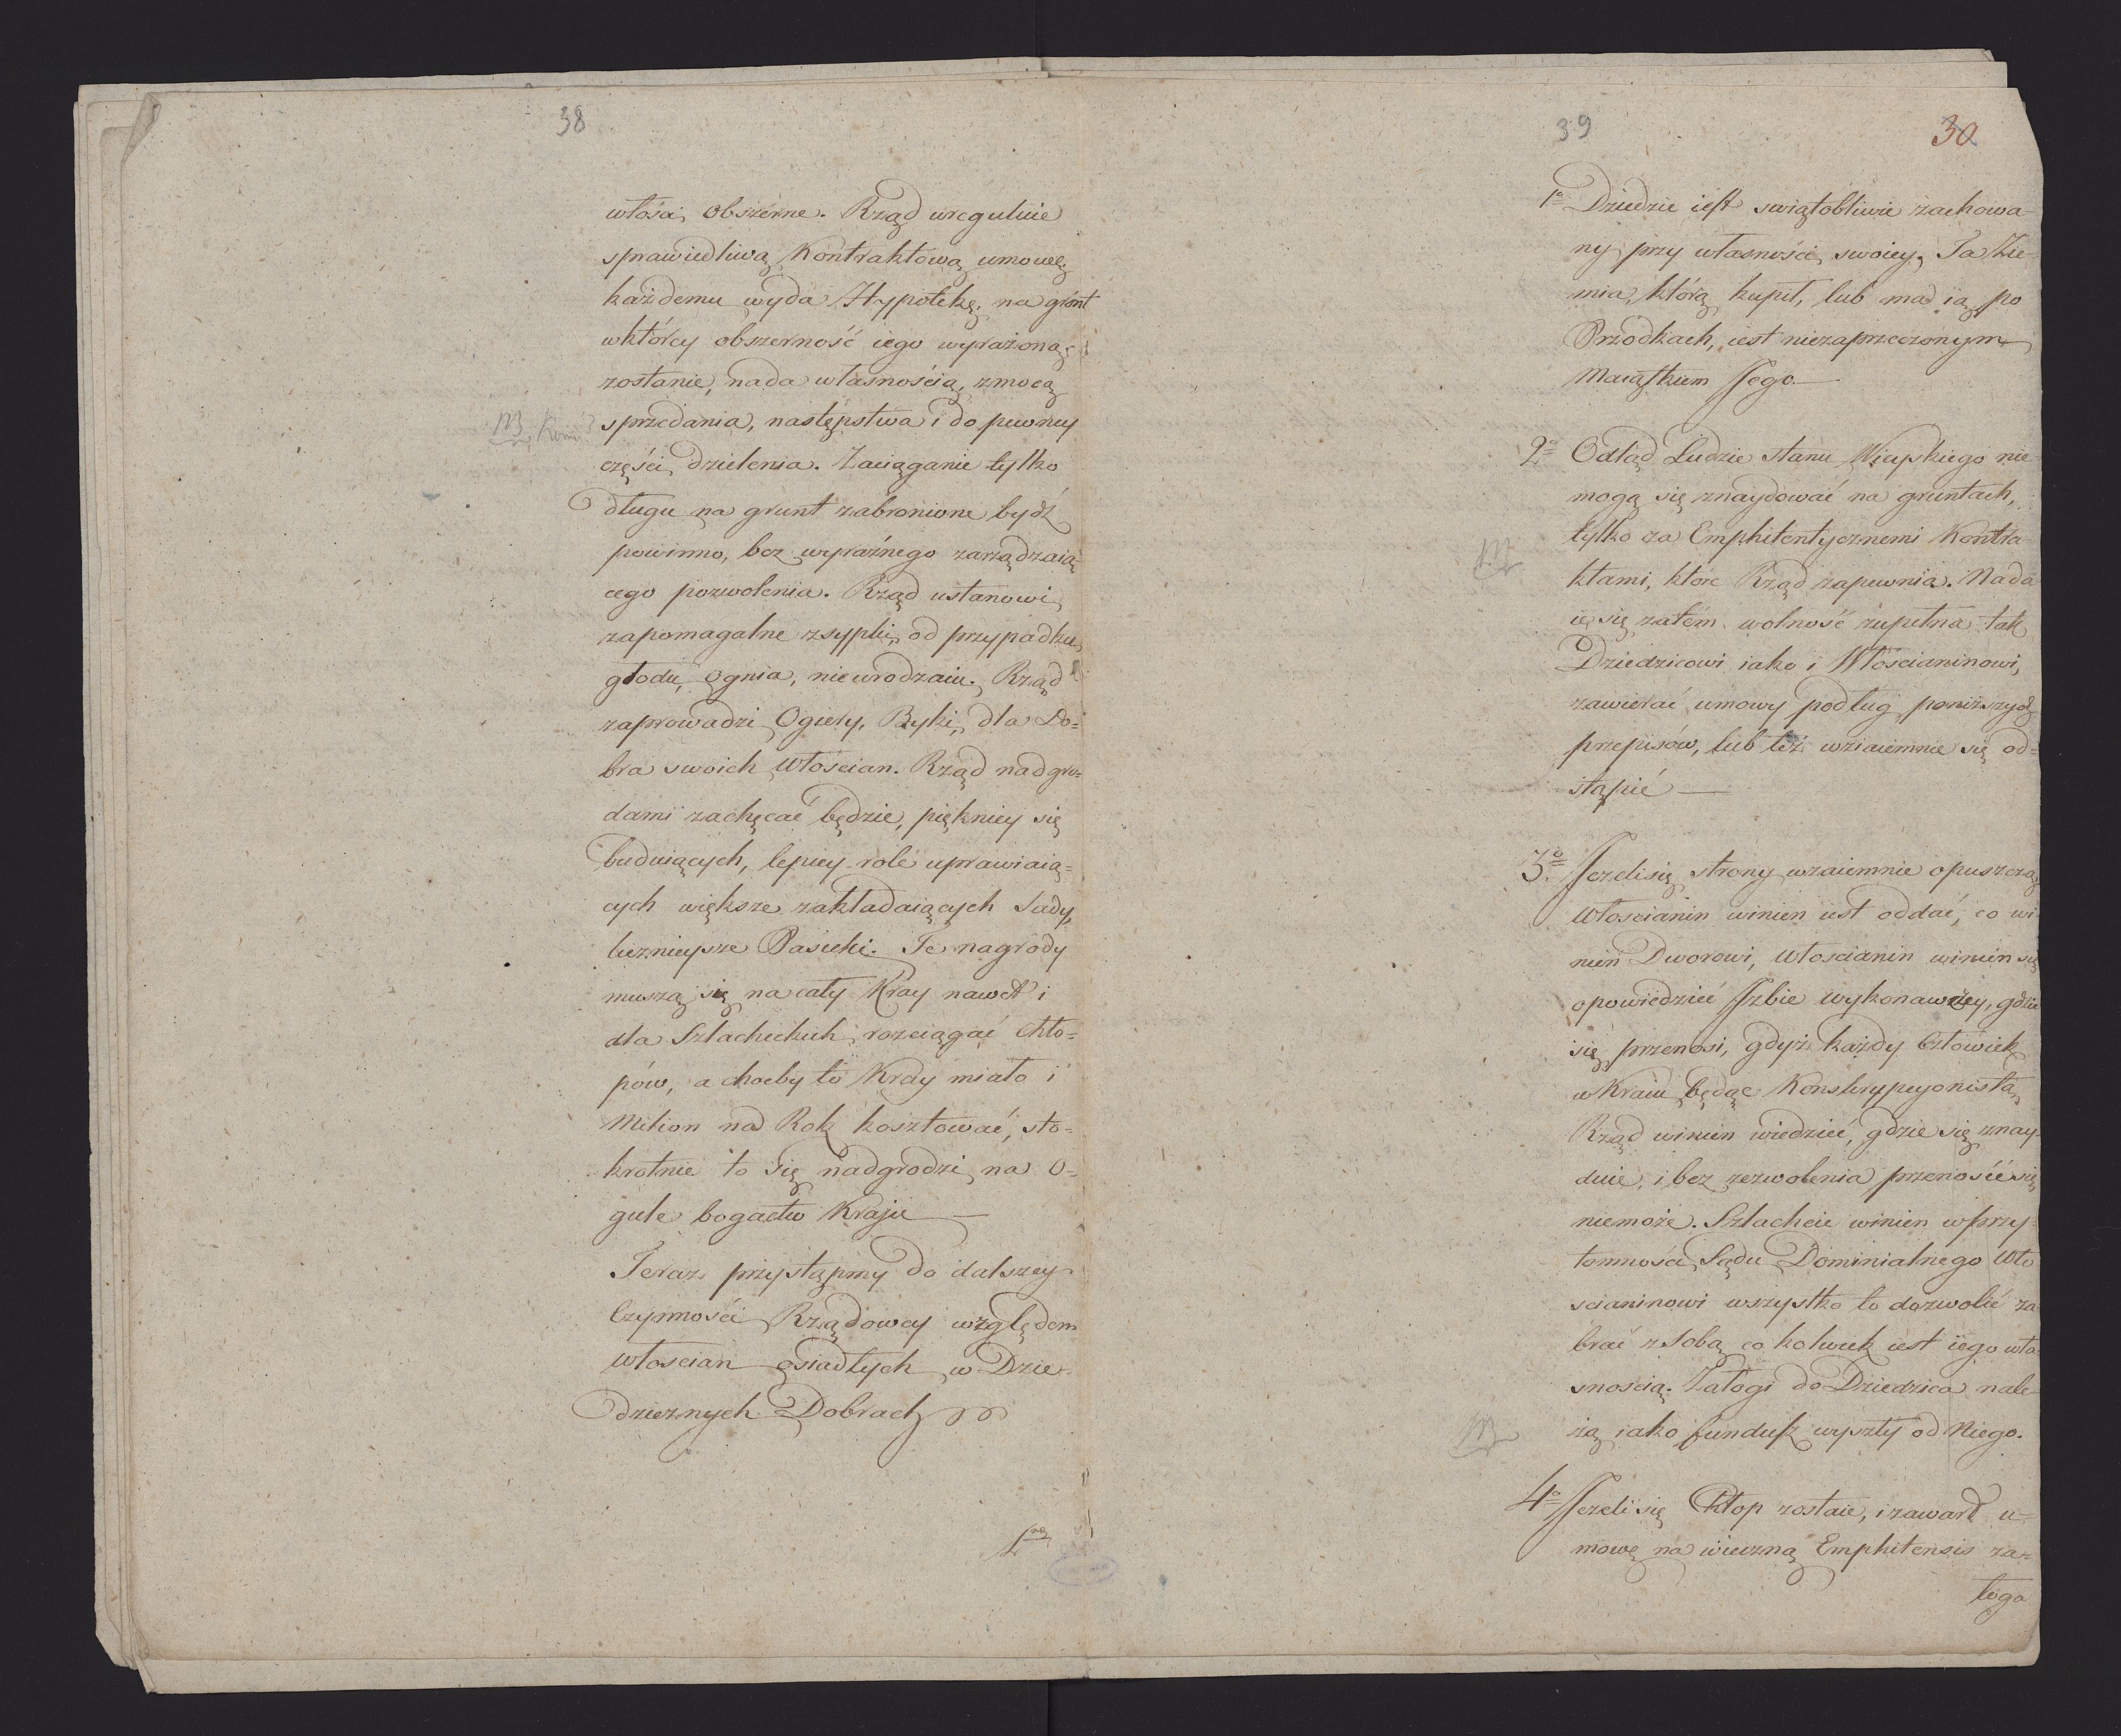 38
włości obszerne. Rząd ureguluie
sprawiedliwą Kontraktową umowę,
każdemu wyda Hypotekę na grónt
wktórey obszerność iego wyrażoną
zostanie, nada własnością, zmocą
sprzedania, następstwa i do pewney
części dzielenia. Zaciąganie tylko
długu na grunt zabronione bydź
powinno, bez wyraźnego zarządzaią
cego pozwolenia. Rząd ustanowi
zapomagalne zsypki od przypadku
głodu, ognia, nieurodzaiu. Rząd
zaprowadzi Ogiery, Byki, dla Do=
bra swoich Włościan. Rząd nadgro=
dami zachęcać będzie, piękniey się
buduiących, lepiey role uprawiaią=
cych większe zakładaiących Sady,
licznieysze Pasieki. Te nagrody
muszą się na cały Kray nawet i
dla Szlacheckich rozciągać chło=
pów, a choćby to Kray miało i
Milion na Rok kosztować, sto=
krotnie to się nadgrodzi na o=
gule bogactw Kraju —
Teraz przystąpmy do dalszey
Czynności Rządowey względem
włościan osiadłych w Dzie=
dzicznych Dobrach
1mo
39
30
1o Dziedzic iest swiątobliwie zachowa
ny przy własności swoiey, Ta Zie=
mia, którą kupił, lub ma ią po
Przodkach, iest niezaprzeczonym
Maiątkiem Jego —
2o Odtąd Ludzie stanu Wieyskiego nie
mogą się znaydować na gruntach,
tylko za Emphiteutycznemi Kontra
ktami, które Rząd zapewnia. Nada
ie się zatém wolność zupełna tak
Dziedzicowi iako i Włościaninowi,
zawierać umowy podług poniższych
przepisów, lub też wziaiemnie się od=
stąpić —
3o Jezeli się strony wzaiemnie opuszczą
Włoscianin winien iest oddać, co wi
nien Dworowi, Włoscianin winien się
opowiedzieć Jzbie wykonawczey, gdzie
się przenosi, gdyż każdy Człowiek
w Kraiu będąc Konskrypcyonistą
Rząd winien wiedzieć, gdzie się znay
duie, i bez zezwolenia przenośćsię
niemoże. Szlachcic winien wprzy=
tomności Sądu Dominialnego Wło
scianinowi wszystko to dozwolić za
brać z Sobą co kolwiek iest iego wła
snością. Załogi do Dziedzica nale=
żą iako fundusz wyszły od Niego.
4o Jezeli się Chłop zostaie, i zawarł u=
mowę na wieczną Emphiteusis za=
łoga